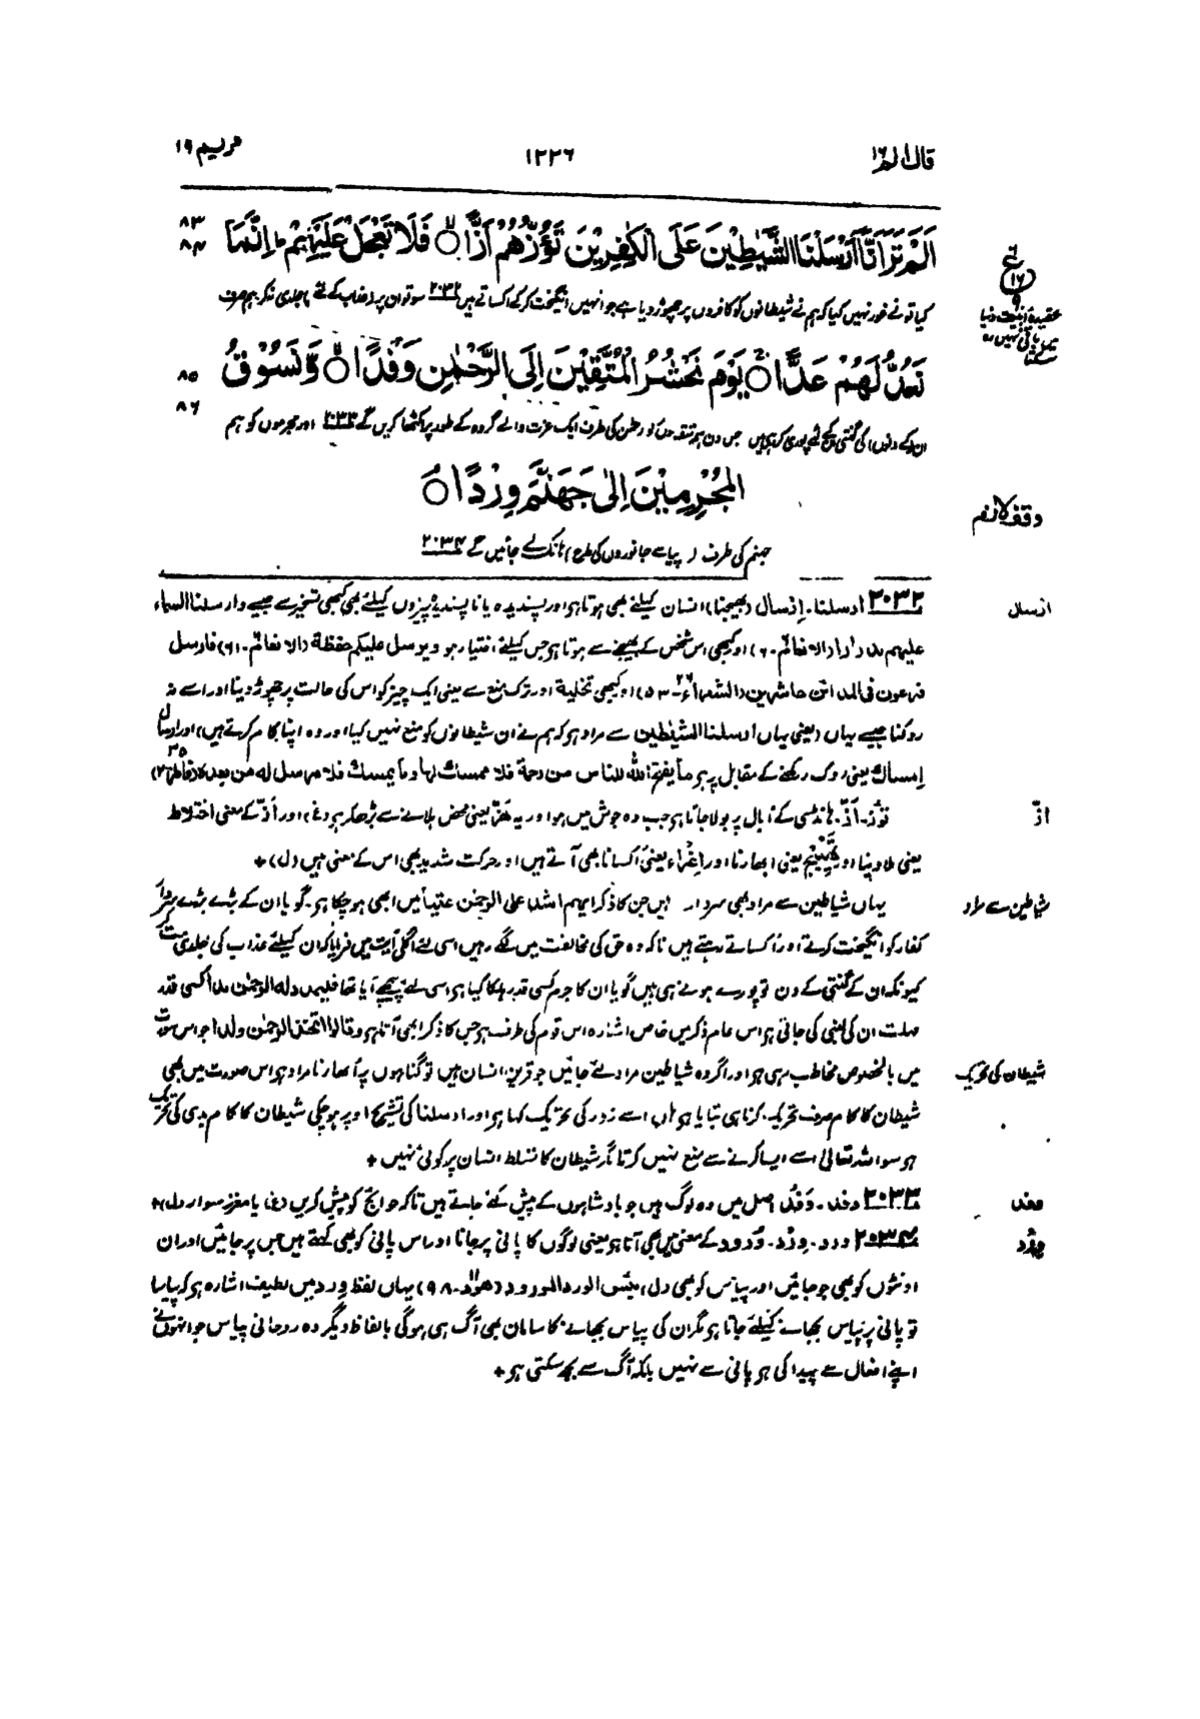 قال الم ١٦
١٢٢٦
مریم ١٩
اَلَمْ تَرَ اَنَّاۤ اَرْسَلْنَا الشَّیٰطِیْنَ عَلَى الْكٰفِرِیْنَ تَؤُزُّهُمْ اَزًّا ۙ فَلَا تَعْجَلْ عَلَیْهِمْ ؕ اِنَّمَا
٨٣
٨٤
کیا تو نے غور نہیں کیا کہ ہم نے شیطانوں کو کافروں پر چھوڑ دیا ہے جو انہیں انگیخت کرکے اکساتے ہیں ٢٠٣٢ سو تو ان پر (عذاب کے لئے) جلدی نہ کر ہم صرف
ع
١٦
عقیدہ ابنیت دنیا
میں باقی نہیں رہ
سکتا
نَعُدُّ لَهُمْ عَدًّا ۚ یَوْمَ نَحْشُرُ الْمُتَّقِیْنَ اِلَى الرَّحْمٰنِ وَفْدًا ۙ وَّنَسُوْقُ
٨٥
٨٦
ان کے (دنوں) کی گنتی پوری کر رہے ہیں جس دن ہم متقیوں کو رحمٰن کی طرف ایک عزت والے گروہ کے طور پر اکٹھا کریں گے ٢٠٣٣ اور مجرموں کو ہم
الْمُجْرِمِیْنَ اِلٰى جَهَنَّمَ وِرْدًا ۘ
وقف لازم
جہنم کی طرف (پیاسے جانوروں کی طرح) ہانک لے جائیں گے ٢٠٣٤
ارسال
٢٠٣٢ ارسلنا۔ اِرْسال (بھیجنا) انسان کیلئے بھی ہوتا ہو اور پسندیدہ یا ناپسندیدہ چیزوں کیلئے بھی کبھی تسخیر سے جیسے وارسلنا السماء
علیہم مدرارا (الانعامؔ۔٦) اور کبھی اس شخص کے بھیجنے سے ہوتا ہو جس کیلئے اختیار ہو و یرسل علیکم حفظة (الانعامؔ۔٦١) فارسل
فرعون فی المدائن حاشرین (الشعراء ٢٦۔٥٣) اور کبھی تخلیہ اور ترک منع سے یعنی ایک چیز کو اس کی حالت پر چھوڑ دینا اور اسے نہ
روکنا جیسے یہاں (یعنی یہاں ارسلنا الشیٰطین سے مراد ہو کہ ہم نے ان شیطانوں کو منع نہیں کیا اور وہ اپنا کام کرتے ہیں) اور ارسال
اِمساک یعنی روک رکھنے کے مقابل پر ہو ما یفتح اللہ للناس من رحمة فلا ممسک لہا وما یمسک فلا مرسل لہ من بعدہ (فاطر ٣٥۔٢)
ازّ
تؤز۔ اَزّ۔ ہانڈی کے اُبال پر بولا جاتا ہو جب وہ جوش میں ہو اور یہ ھَزّ یعنی محض ہلانے سے بڑھکر ہو (غ) اور اَزّ کے معنی اختلاط
یعنی ملا دینا اور تَهْیِیْج یعنی ابھارنا اور اِغْراء یعنی اُکسانا بھی آتے ہیں اور حرکت شدید بھی اس کے معنی ہیں (ل) +
شیاطین سے مراد
یہاں شیاطین سے مراد بھی سردار ہیں جن کا ذکر ایہم اشد علی الرحمٰن عتیا میں ابھی ہو چکا ہو۔ گویا ان کے بڑے بڑے سردار
کفار کو انگیخت کرتے اور اُکساتے رہتے ہیں تاکہ وہ حق کی مخالفت میں لگے رہیں اسی لئے اگلی آیت میں فرمایا کہ ان کیلئے عذاب کی جلدی مت کر
کیونکہ ان کے گنتی کے دن تو پورے ہونے ہی ہیں گویا ان کا جرم کسی قدر ہلکا کیا ہو اسی لئے پیچھے آیا تھا فلیمدد لہ الرحمٰن مدا کسی قدر
مہلت ان کی لمبی کی جاتی ہو اس عام ذکر میں خاص اشارہ اس قوم کی طرف ہو جس کا ذکر ابھی آتا ہو وقالوا اتخذ الرحمٰن ولدا جو اس سورت
شیطان کی تحریک
میں بالخصوص مخاطب رہی ہو اور اگر وہ شیاطین مراد لئے جائیں جو قرین انسان ہیں تو گناہوں پر اُبھارنا مراد ہو اس صورت میں بھی
شیطان کا کام صرف تحریک کرنا ہی بتایا ہو ہاں اسے زور کی تحریک کہا ہو اور ارسلنا کی تشریح اوپر ہو چکی شیطان کا کام بدی کی تحریک
ہو سو اللہ تعالیٰ اسے ایسا کرنے سے منع نہیں کرتا مگر شیطان کا تسلط انسان پر کوئی نہیں +
وفد
٢٠٣٣ وفد۔ وَفْد اصل میں وہ لوگ ہیں جو بادشاہوں کے پیش کئے جاتے ہیں تاکہ حوائج کو پیش کریں (غ) یا معزز سوار (ل) +
وِرْد
٢٠٣٤ ورد۔ وِرْد۔ وُرُود کے معنی میں بھی آتا ہو یعنی لوگوں کا پانی پر جانا اور اس پانی کو بھی کہتے ہیں جس پر جائیں اور ان
اونٹوں کو بھی جو جائیں اور پیاس کو بھی (ل) بئس الورد المورود (ھود۔٩٨) یہاں لفظ وِرد میں لطیف اشارہ ہو کہ پیاسا
تو پانی پر پیاس بجھانے کیلئے جاتا ہو مگر ان کی پیاس بجھانے کا سامان بھی آگ ہی ہوگی بالفاظ دیگر وہ روحانی پیاس جو انہوں نے
اپنے افعال سے پیدا کی ہو پانی سے نہیں بلکہ آگ سے بجھ سکتی ہو +